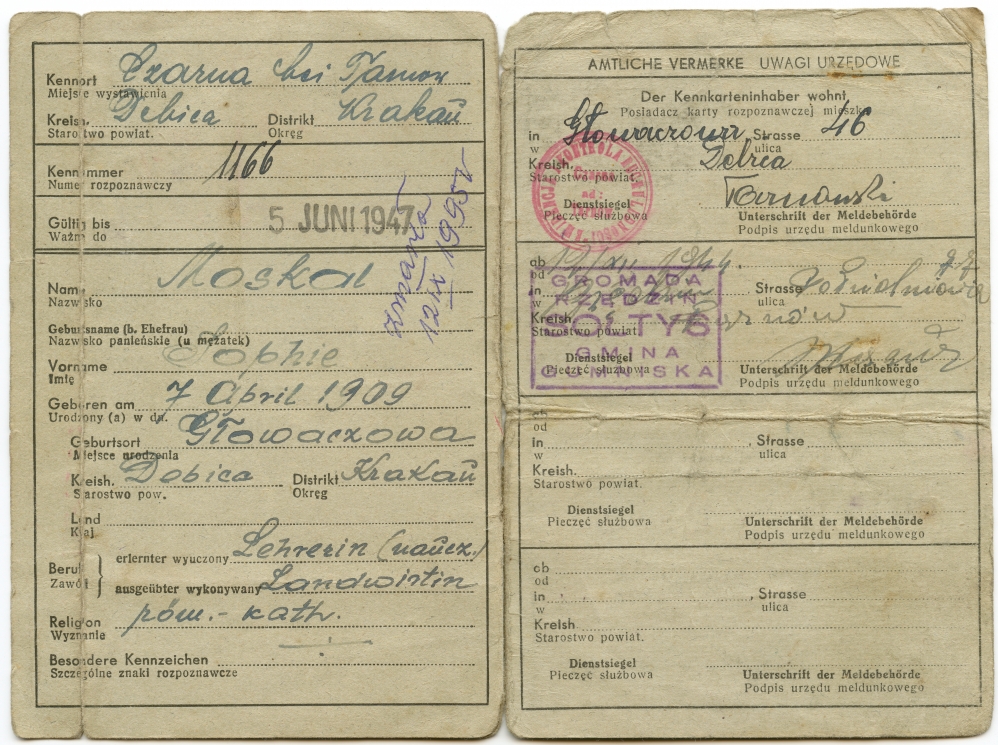 Kennort Czarna bei Tarnow
Miejsce wystawienia
Kreish. Debica Distrikt Krakau
Starostwo powiat. Okręg
Kennummer 1166
Numer rozpoznawczy
Gültig bis 5 JUNI 1947
Ważna do
zmarła
12 1995 r
Name Moskal
Nazwisko
Geburtsname (b. Ehefrau)
Nazwisko panieńskie (u mężatek)
Vorname Sophie
Imię
Geboren am 7 April 1909
Urodzony (a) w dn.
Geburtsort Głowaczowa
Miejsce urodzenia
Kreish. Debica Distrikt Krakau
Starostwo pow. Okręg
Land
Kraj
Beruf erlernter wyuczony Lehrerin (naucz.)
Zawód ausgeübter wykonywany Landwirtin
Religion röm.- kath.
Wyznanie
Besondere Kennzeichen
Szczególne znaki rozpoznawcze
AMTLICHE VERMERKE UWAGI URZĘDOWE
Der Kennkarteninhaber wohnt
Posiadacz karty rozpoznawczej mieszka
in Głowaczowa, Strasse 46
w ulica
Kreish. Debica
Starostwo powiat.
Dienstsiegel Tarnowski
Pieczęć służbowa Unterschrift der Meldebehörde
Podpis urzędu meldunkowego
KONTROLA
ab 12/XII 1944.
od
in Strasse
ulica
Kreish. Tarnów
Starostwo powiat.
Dienstsiegel Unterschrift der Meldebehörde
Pieczęć służbowa Podpis urzędu meldunkowego
GROMADA
RZĘDZIN
SOŁTYS
GMINA
GUMNISKA
ab
od
in , Strasse
w ulica
Kreish.
Starostwo powiat.
Dienstsiegel Unterschrift der Meldebehörde
Pieczęć służbowa Podpis urzędu meldunkowego
ab
od
in , Strasse
w ulica
Kreish
Starostwo powiat.
Dienstsiegel Unterschrift der Meldebehörde
Pieczęć służbowa Podpis urzędu meldunkowego